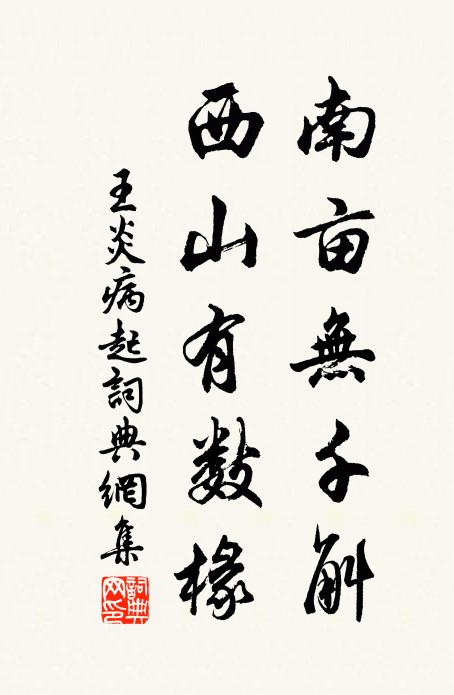 南亩無千斛
西山有数椽
王炎病起詞典網集
詞典网印